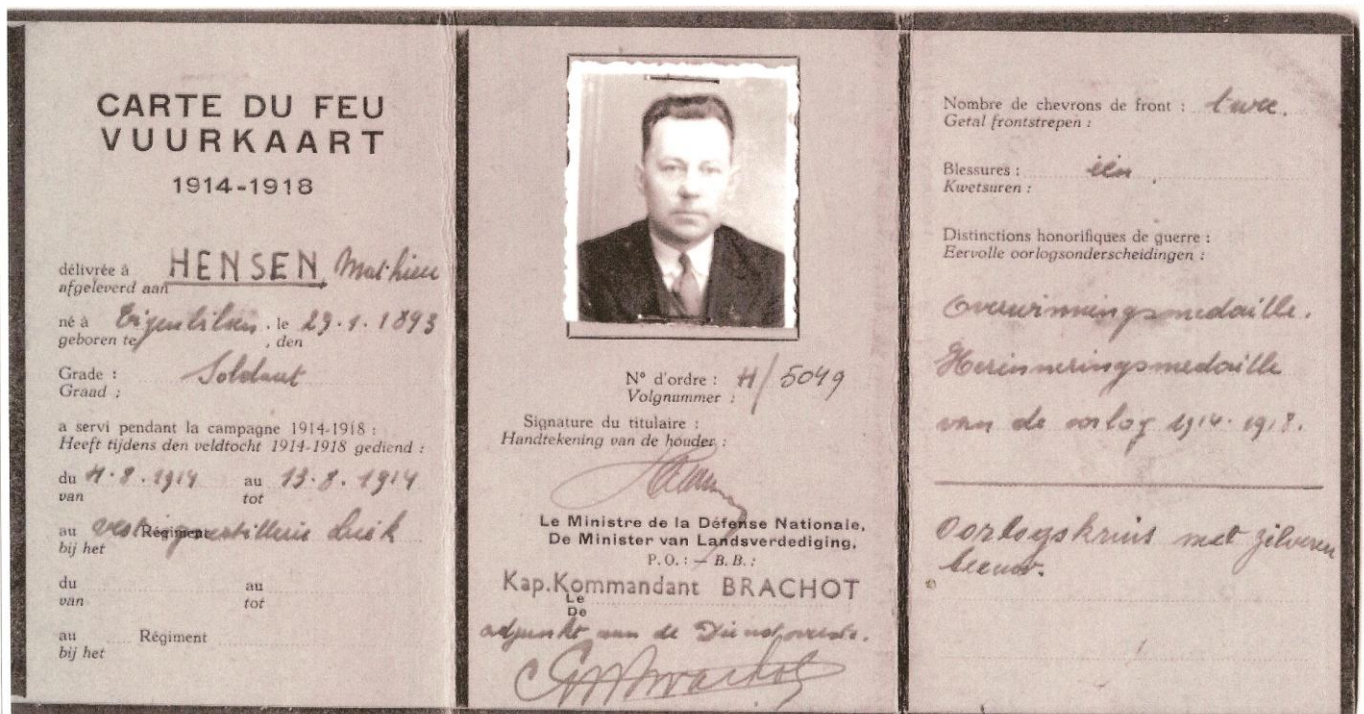 CARTE DU FEU
VUURKAART
1914-1918
délivrée à HENSEN, Mathieu
afgeleverd aan
né à Eigenbilsen, le 29.1.1893
geboren te , den
Grade : Soldaat
Graad :
a servi pendant la campagne 1914-1918 :
Heeft tijdens den veldtocht 1914-1918 gediend :
du 4.8.1914 au 13.8.1914
van tot
au vestingartillerie Luik Régiment
bij het
du au
van tot
au Régiment
bij het
N° d'ordre : H/5049
Volgnummer :
Signature du titulaire :
Handtekening van de houder :
Le Ministre de la Défense Nationale,
De Minister van Landsverdediging,
P.O. : — B.B. :
Kap.Kommandant BRACHOT
Le
De
adjunkt aan de Dienstoverste.
Brachot
Nombre de chevrons de front : twee.
Getal frontstrepen :
Blessures : één.
Kwetsuren :
Distinctions honorifiques de guerre :
Eervolle oorlogsonderscheidingen :
Overwinningsmedaille.
Herinneringsmedaille
van de oorlog 1914-1918.
Oorlogskruis met zilveren
leeuw.